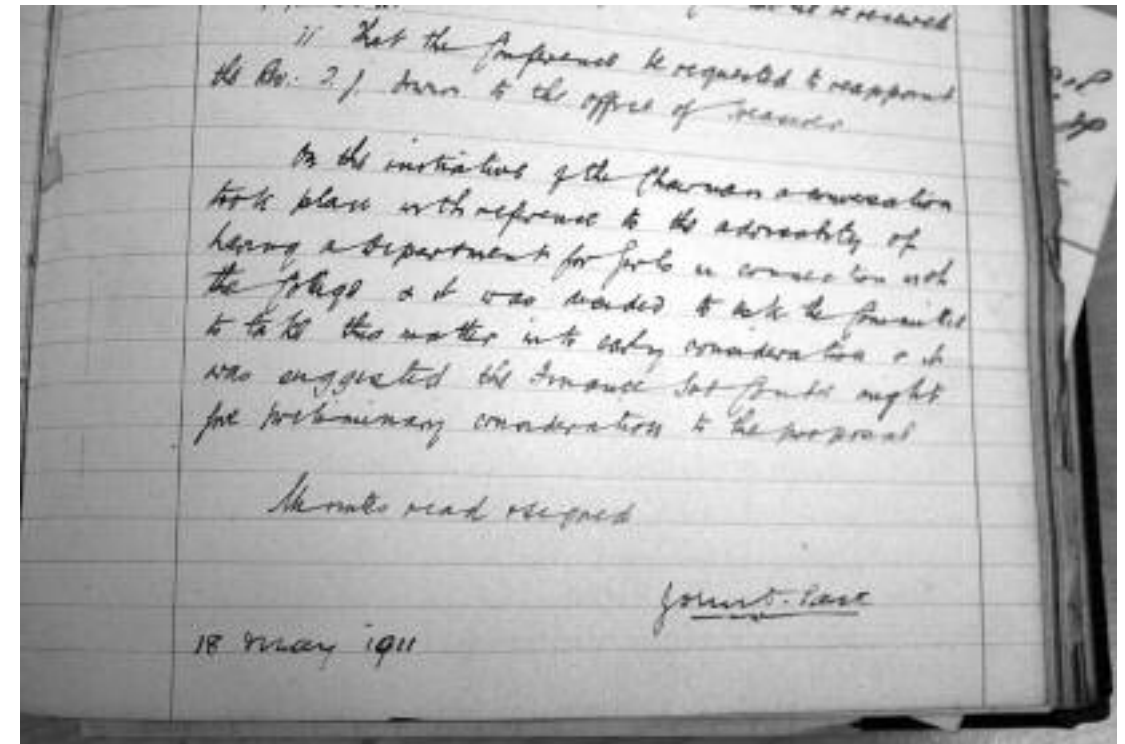 be renewed
11 That the Conference be requested to reappoint
the Rev: to the office of
On the initiative of the Chairman a conversation
took place with reference to the advisability of
having a Department for Girls in connection with
the College & it was decided to ask the Committee
to take this matter into early consideration & it
was suggested the Finance Sub Comtee might
give preliminary consideration to the proposal
Minutes read & signed
18 May 1911